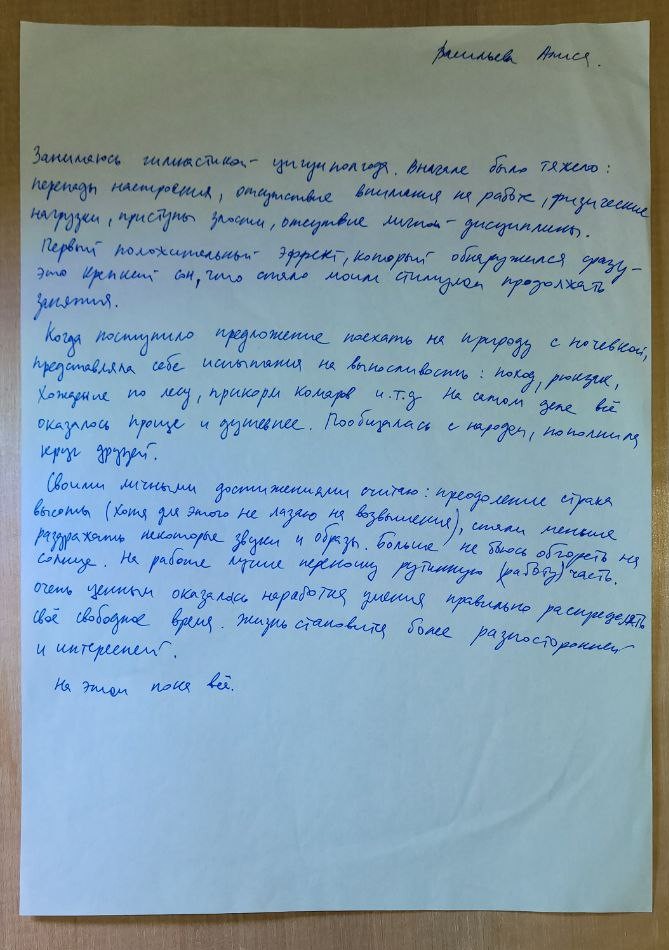 Васильева Алиса.
Занимаюсь гимнастикой цигун полгода. Вначале было тяжело:
перепады настроения, отсутствие внимания на работе, физические
нагрузки, приступы злости, отсутствие личной дисциплины.
Первый положительный эффект, который обнаружился сразу -
это крепкий сон, что стало моим стимулом продолжать
занятия.
Когда поступило предложение поехать на природу с ночевкой,
представляла себе испытания на выносливость: поход, рюкзак,
хождение по лесу, прикорм комаров и.т.д На самом деле всё
оказалось проще и душевнее. Пообщалась с народом, пополнила
круг друзей.
Своими личными достижениями считаю: преодоление страха
высоты (хотя для этого не лазаю на возвышения), стали меньше
раздражать некоторые звуки и образы. Больше не боюсь обгореть на
солнце. На работе лучше переношу рутинную (работу) часть.
Очень ценным оказалась наработка умения правильно распределять
своё свободное время. Жизнь становится более разносторонней
и интересней.
На этом пока всё.